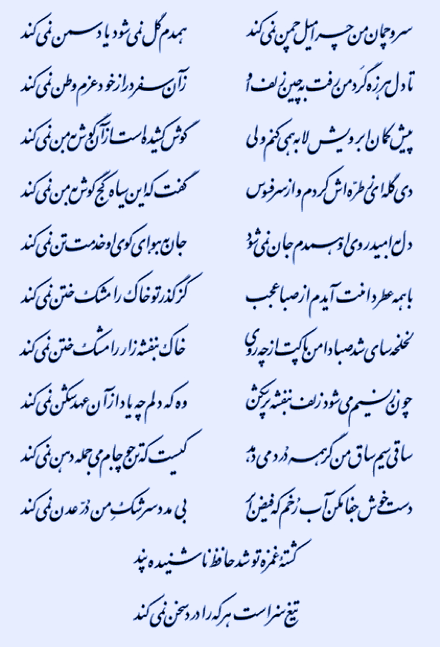 سرو چمان من چرا میل چمن نمی‌کند همدم گل نمی‌شود یاد سمن نمی‌کند
تا دل هرزه گرد من رفت به چین زلف او زآن سفر دراز خود عزم وطن نمی‌کند
پیش کمان ابرویش لابه همی کنم ولی گوش کشیده است از آن گوش به من نمی‌کند
دی گله‌ای ز طره‌اش کردم و از سر فسوس گفت که این سیاه کج گوش به من نمی‌کند
دل به امید روی او همدم جان نمی‌شود جان به هوای کوی او خدمت تن نمی‌کند
با همه عطر دامنت آیدم از صبا عجب کز گذر تو خاک را مشک ختن نمی‌کند
لخلخه‌سای شد صبا دامن پاکت از چه روی خاک بنفشه‌زار را مشک ختن نمی‌کند
چون ز نسیم می‌شود زلف بنفشه پرشکن وه که دلم چه یاد از آن عهدشکن نمی‌کند
ساقی سیم ساق من گر همه درد می‌دهد کیست که تن چو جام می جمله دهن نمی‌کند
دستخوش جفا مکن آب رخم که فیض ابر بی مدد سرشک من در عدن نمی‌کند
کشتهٔ غمزهٔ تو شد حافظ ناشنیده پند
تیغ سزاست هر که را درد سخن نمی‌کند